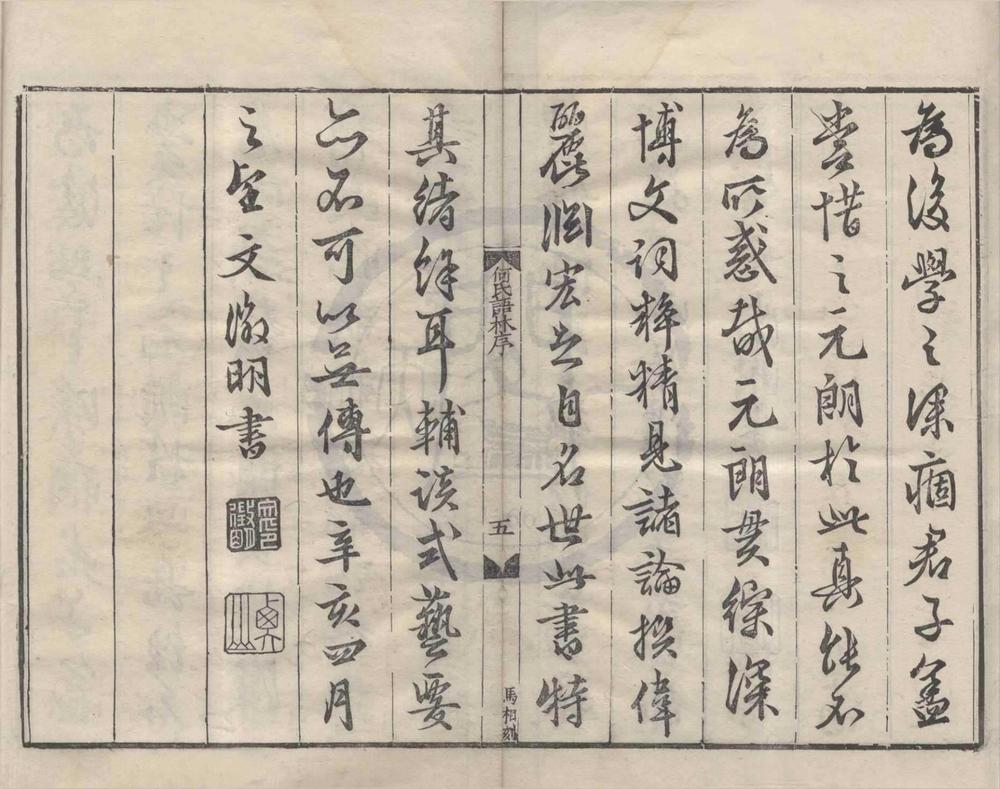 為後學之深痼君子蓋
嘗惜之元朗於此真能不
為所惑哉元朗貫綜深
博文詞粹精見諸論撰偉
麗淵宏足自名世此書特
何氏語林序
五
馬相刻
其緒餘耳輔談式藝要
亦不可以無傳也辛亥四月
之望文徵明書